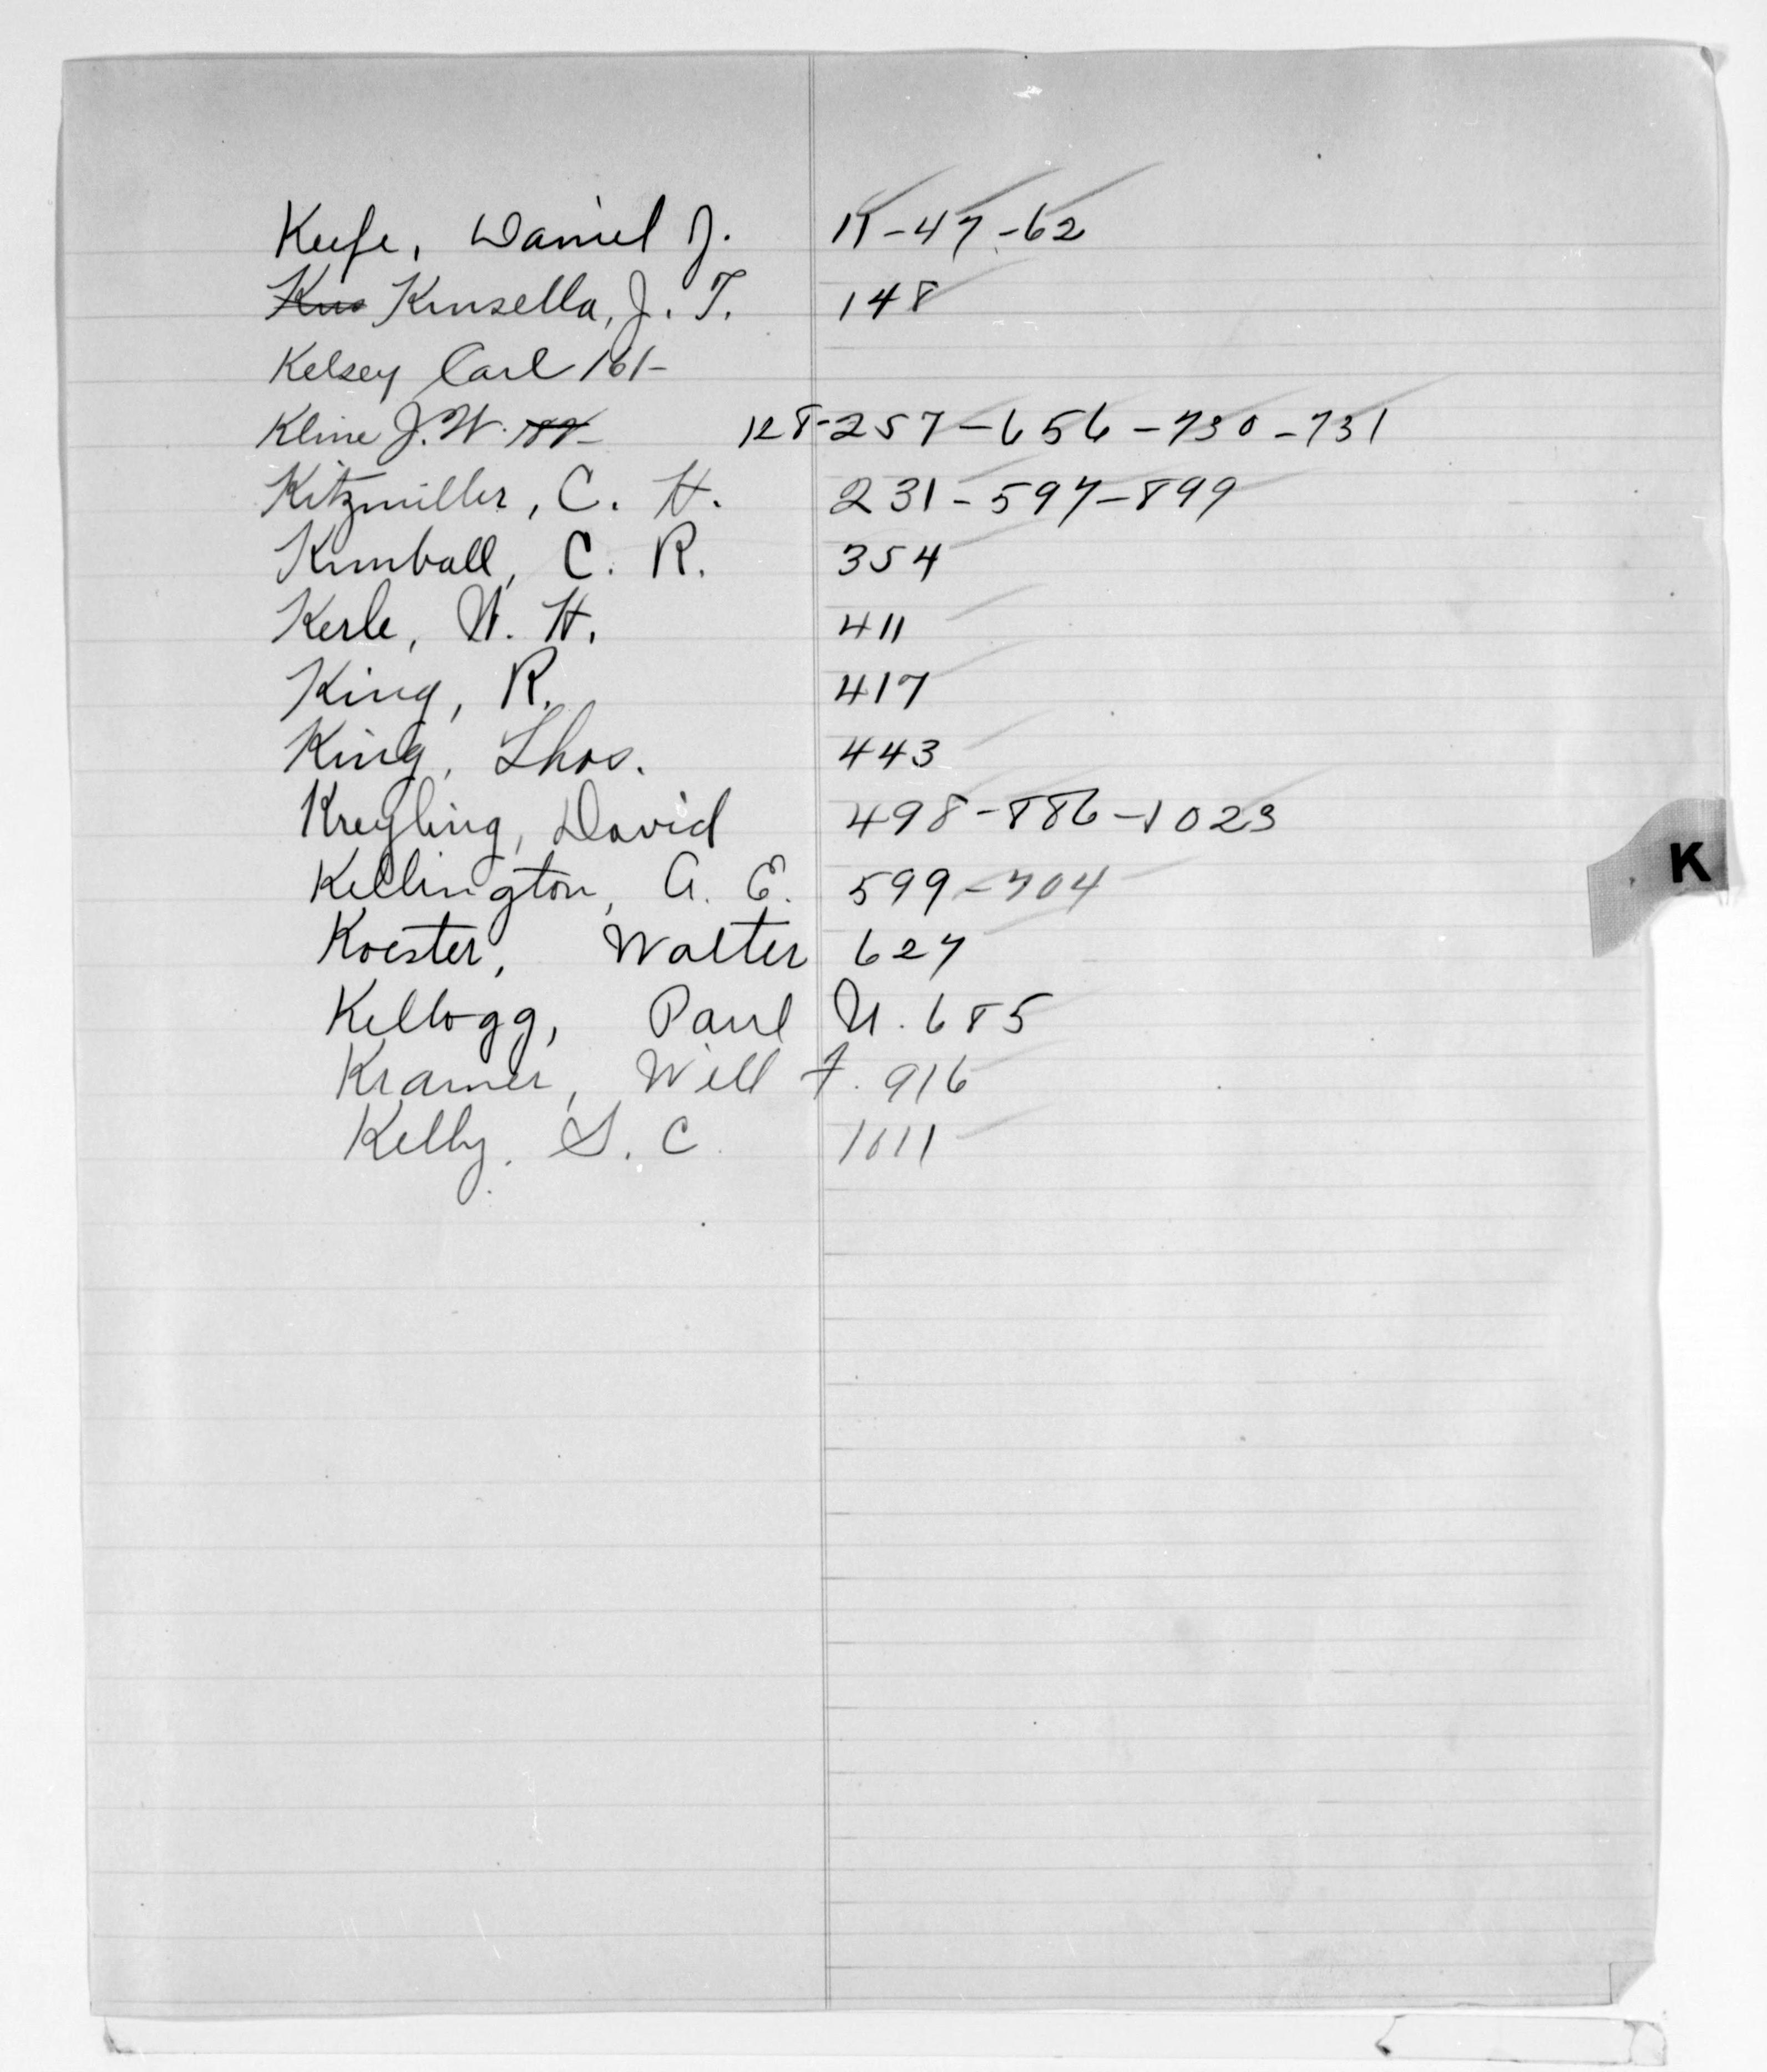 Keefe, Daniel J. 11-47-62
Kins Kinsella, J. T. 148
Kelsey Carl 161-
Kline J. W. 128-257-656-730-731
Kitzmiller, C. H. 231-597-899
Kimball, C. R. 354
Kerle, W. H. 411
King, R. 417
King, Thos. 443
Kreyling, David 498-886-1023
Kellington, A. E. 599-704
Koester, Walter 627
Kellogg, Paul U. 685
Kramer, Will F. 916
Kelly, S. C 1011
K